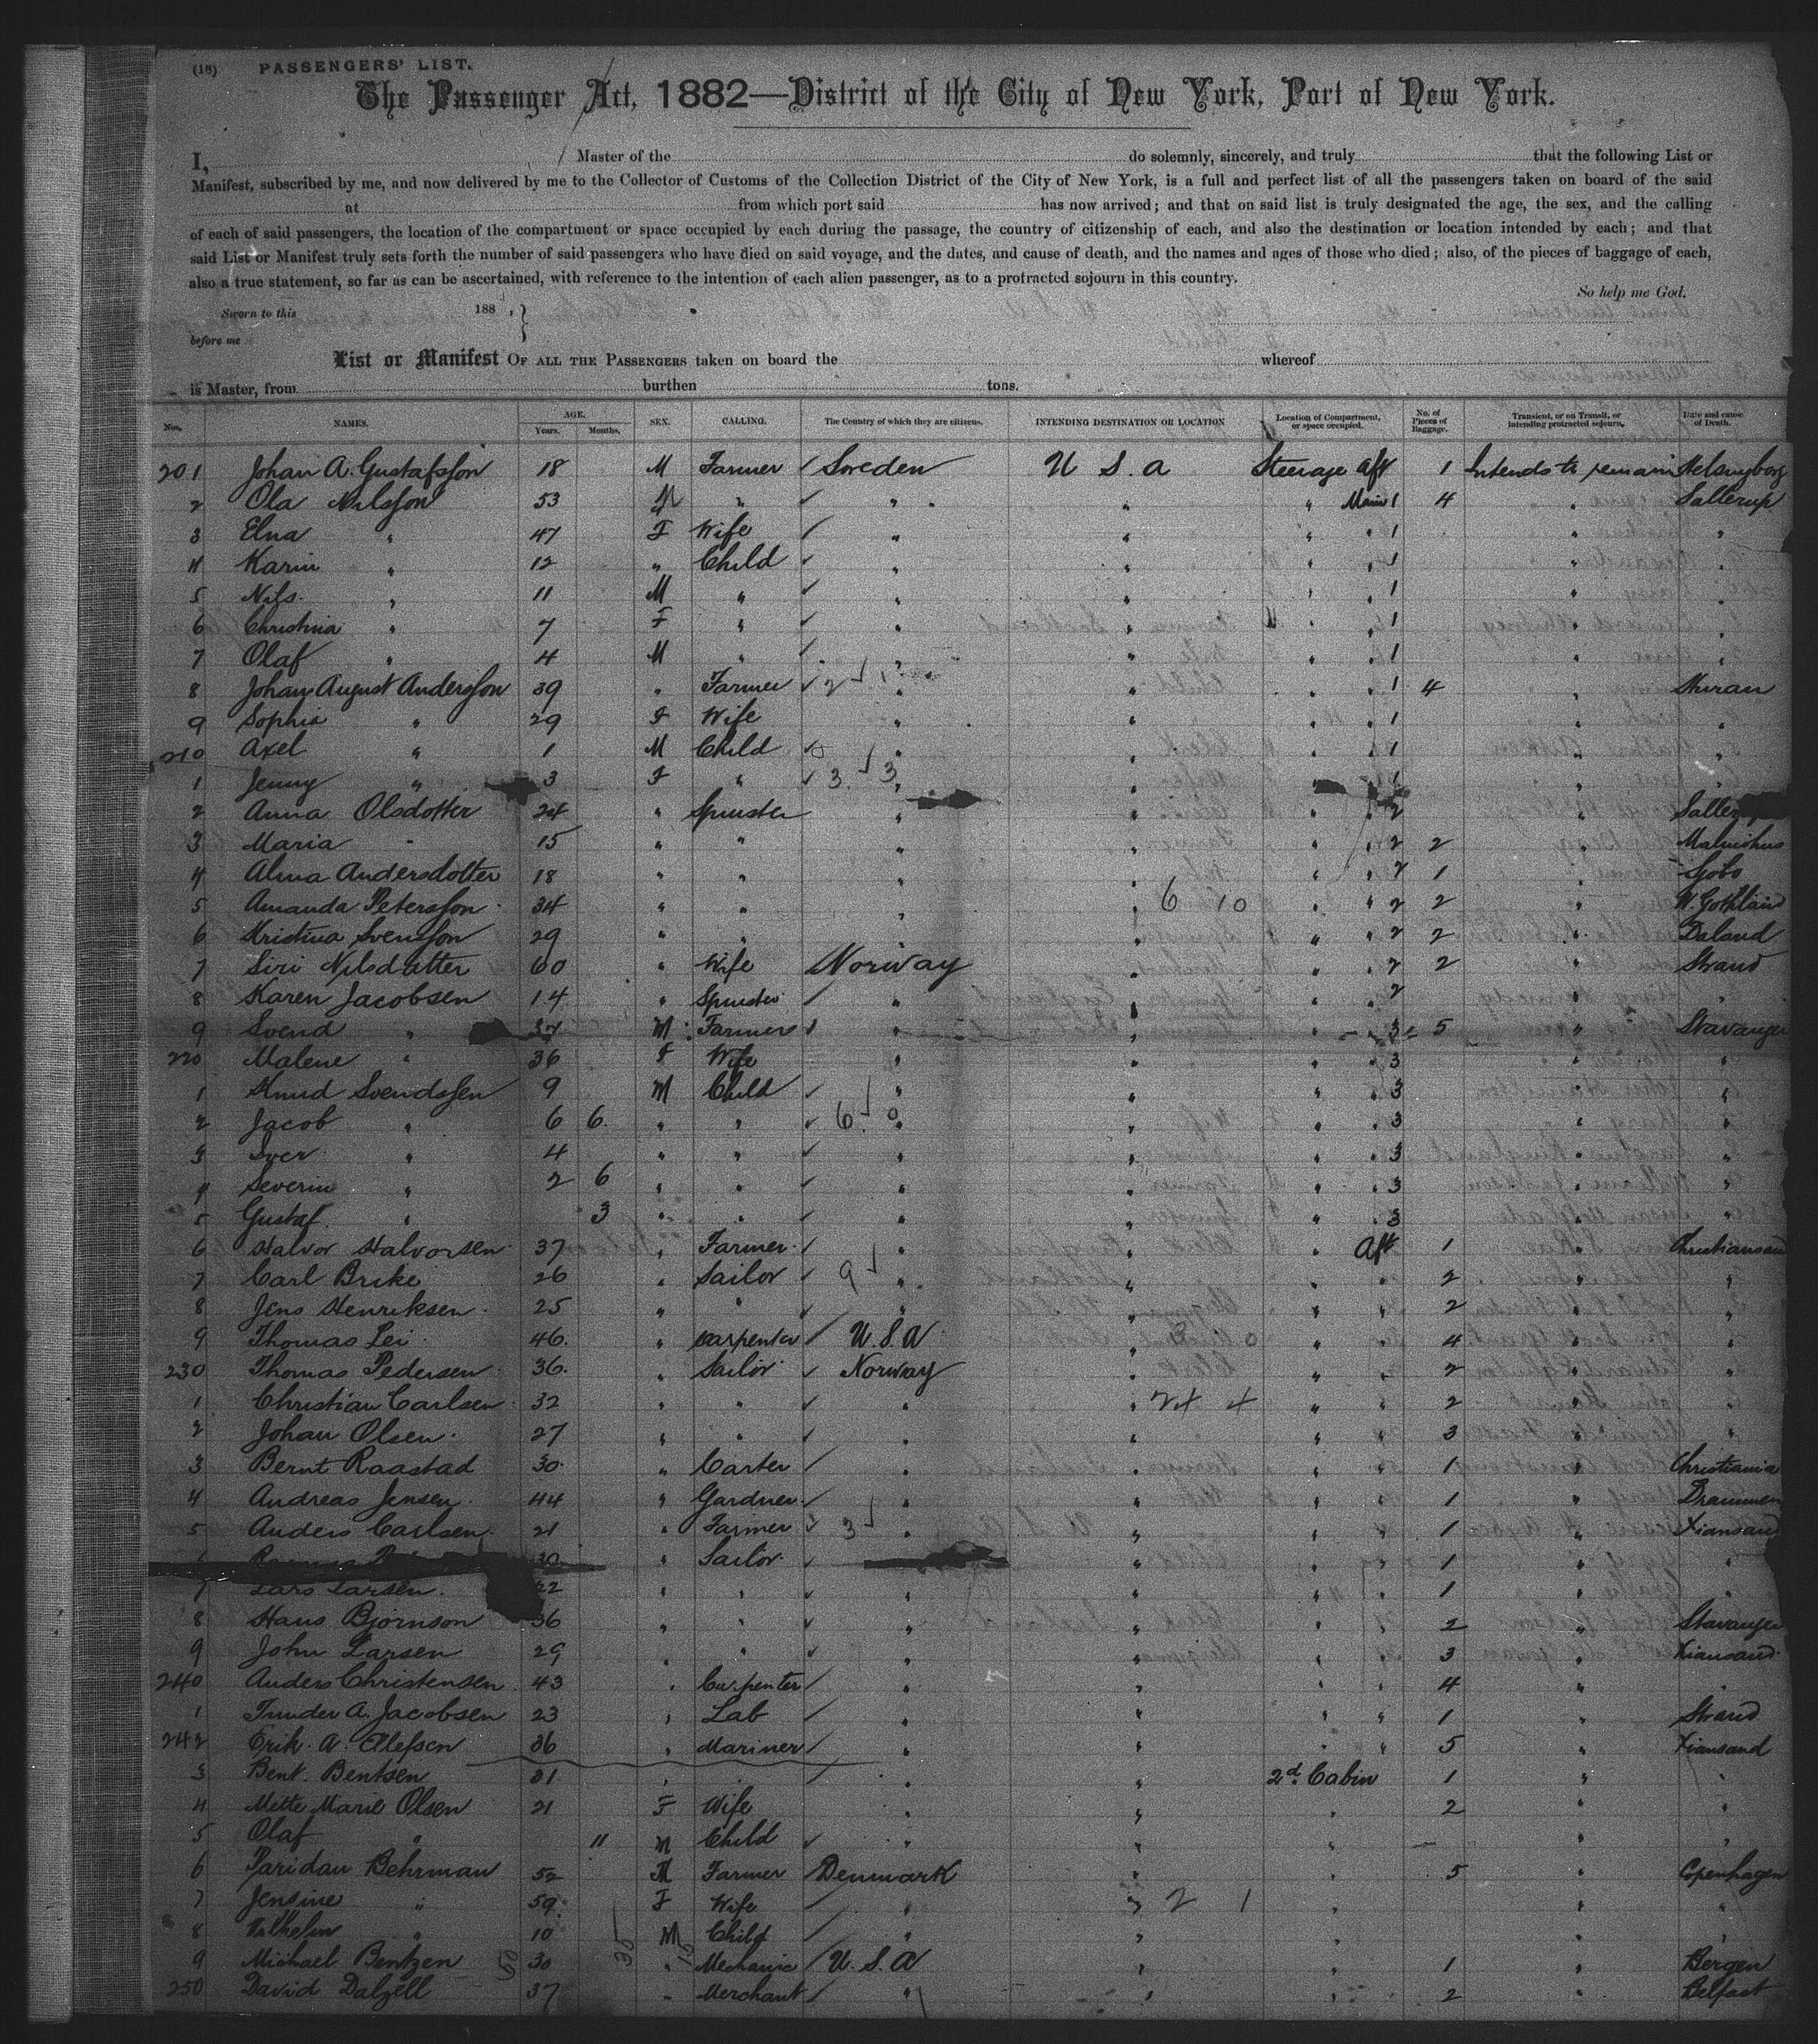 (18) PASSENGERS' LIST.
The Passenger Act, 1882—District of the City of New York, Port of New York.
I, Master of the do solemnly, sincerely, and truly that the following List or
Manifest, subscribed by me, and now delivered by me to the Collector of Customs of the Collection District of the City of New York, is a full and perfect list of all the passengers taken on board of the said
at from which port said has now arrived; and that on said list is truly designated the age, the sex, and the calling
of each of said passengers, the location of the compartment or space occupied by each during the passage, the country of citizenship of each, and also the destination or location intended by each; and that
said List or Manifest truly sets forth the number of said passengers who have died on said voyage, and the dates, and cause of death, and the names and ages of those who died; also, of the pieces of baggage of each,
also a true statement, so far as can be ascertained, with reference to the intention of each alien passenger, as to a protracted sojourn in this country.
So help me God.
Sworn to this 188 ,
before me
List or Manifest OF ALL THE PASSENGERS taken on board the whereof
is Master, from burthen tons.
Nos. NAMES. AGE. Years. Months. SEX. CALLING. The Country of which they are citizens. INTENDING DESTINATION OR LOCATION Location of Compartment, or space occupied. No. of Pieces of Baggage. Transient, or on Transit, or intending protracted sojourn. Date and cause of Death.
201 Johan A. Gustafsson 18 M Farmer Sweden U S a Steerage Aft 1 Intends to remain Helsingborg
2 Ola Nilsson 53 M " " " " Main 1 4 " Sallerup
3 Elna " 47 F Wife " " " " 1 " "
4 Karin " 12 " Child " " " " 1 " "
5 Nils " 11 M " " " " " 1 " "
6 Christina " 7 F " " " " " 1 " "
7 Olaf " 4 M " " " " " 1 " "
8 Johan August Andersson 39 " Farmer 2 " " " " 1 4 "
9 Sophia " 29 F Wife " " " " 1 " "
210 Axel " 1 M Child " " " " 1 " "
1 Jenny " 3 F " 3 3 " " " 1 " "
2 Anna Olsdotter 24 " Spinster " " " " 2 "
3 Maria " 15 " " " " " " 2 2 " Malmohus
4 Alma Andersdotter 18 " " " " " " 2 1 " Sjobo
5 Amanda Petersson 34 " " " " 6 10 " " 2 2 " W. Gothland
6 Kristina Svensson 29 " " " " " " 2 2 " Daland
7 Siri Nilsdatter 60 " Wife Norway " " " 2 2 " Strand
8 Karen Jacobsen 14 " Spinster " " " " 2 " "
9 Svend " 37 M Farmer " " " 3 5 " Stavanger
220 Malene " 36 F Wife " " " " 3 " "
1 Knud Svendssen 9 M Child " " " " 3 " "
2 Jacob " 6 6 " " 6 0 " " " " 3 " "
3 Iver " 4 " " " " " " 3 " "
4 Severin " 2 6 " " " " " " 3 " "
5 Gustaf " 3 " " " " " " 3 " "
6 Halvor Halvorsen 37 " Farmer " " " Aft 1 " Christiansand
7 Carl Brike 26 " Sailor 9 " " " " 2 " "
8 Jens Henriksen 25 " " " " " " 2 " "
9 Thomas Lei 46 " Carpenter U.S.A " " " 4 " "
230 Thomas Pedersen 36 " Sailor Norway " " " 2 " "
1 Christian Carlsen 32 " " " " 24 4 " " 2 " "
2 Johan Olsen 27 " " " " " " 3 " "
3 Bernt Raastad 30 " Carter " " " " 1 " Christiania
4 Andreas Jensen 44 " Gardner " " " " 1 " Drammen
5 Anders Carlsen 21 " Farmer 3 " " " " 1 " Xiansand
30 " Sailor " " " 1 " "
7 Lars Larsen 22 " " " " " " 1 " "
8 Hans Bjornson 36 " " " " " " 2 " Stavanger
9 John Larsen 29 " " " " " " 3 " Xiansand
240 Anders Christensen 43 " Carpenter " " " " 4 " "
1 A. Jacobsen 23 " Lab " " " " 1 " Strand
242 Erik A. 36 " Mariner " " " " 5 " Xiansand
3 Bent Bentsen 31 " " " " 2d Cabin 1 " "
4 Mette Marie Olsen 21 F Wife " " " 2 " "
5 Olaf " 11 M Child " " " – " "
6 Behrman 52 M Farmer Denmark " " 5 " Copenhagen
7 Jensine " 59 F Wife " " 2 1 " " "
8 Vilhelm " 10 M Child " " " " "
9 Michael Bentzen 30 " Mechanic U.S.A " " 1 " Bergen
250 David Dalzell 37 " Merchant " " " 2 " Belfast